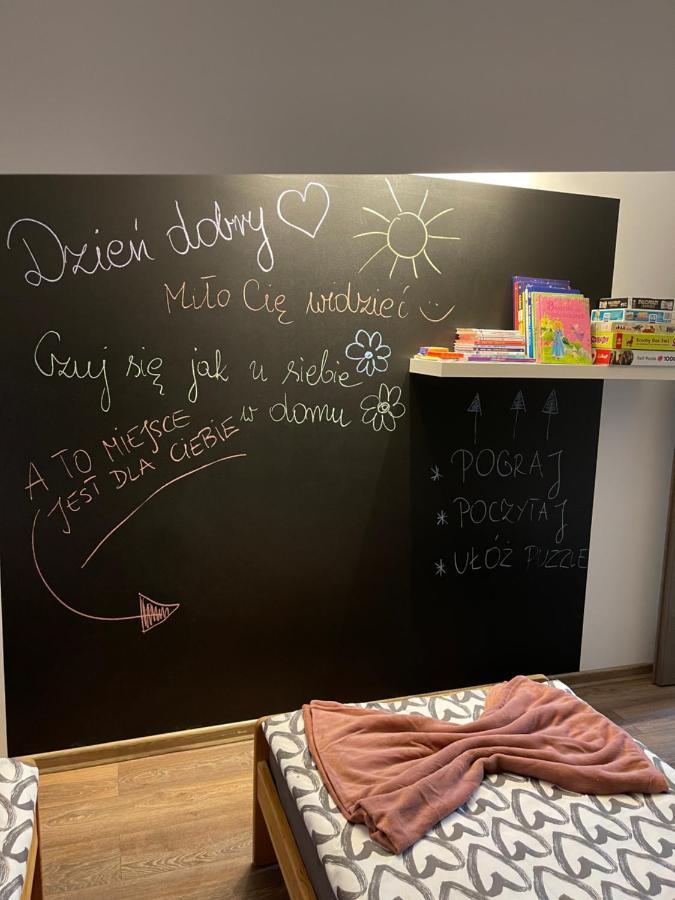 Dzień dobry
Miło Cię widzieć
Czuj się jak u siebie
w domu
A TO MIEJSCE
JEST DLA CIEBIE
* POGRAJ
* POCZYTAJ
* UŁÓŻ PUZZLE